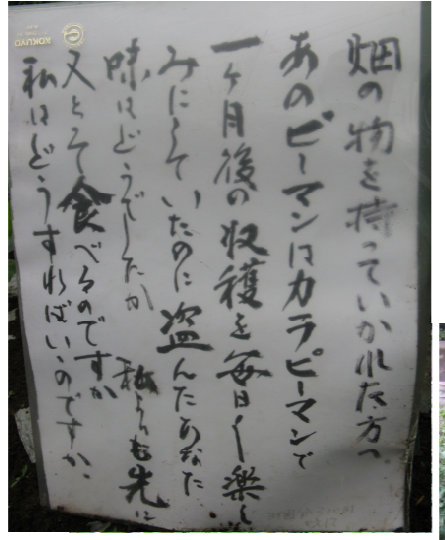 畑の物を持っていかれた方へ
あのピーマンはカラピーマンで
一ヶ月後の収穫を毎日〱楽し
みにしていたのに盗んだあなた
味はどうでしたか 私よりも先に
又とって食べるのですか
私はどうすればいいのですか、
KOKUYO